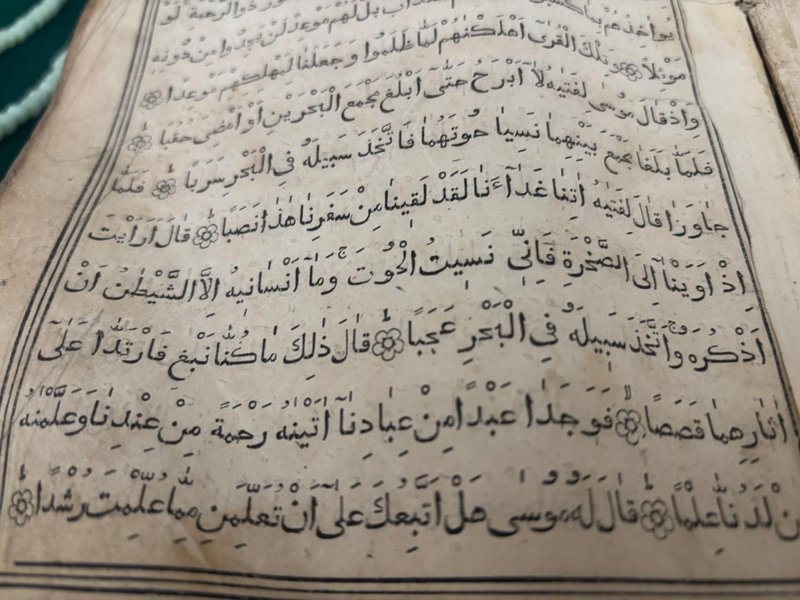 يُؤَاخِذُهُمْ بِمَا كَسَبُوا
بَلْ لَهُمْ مَوْعِدٌ لَنْ يَجِدُوا مِنْ دُونِهِ
مَوْئِلًا ۝ وَتِلْكَ الْقُرَىٰ أَهْلَكْنَاهُمْ لَمَّا ظَلَمُوا وَجَعَلْنَا لِمَهْلِكِهِمْ مَوْعِدًا ۝
وَاِذْ قَالَ مُوسٰى لِفَتٰيهُ لَآ اَبْرَحُ حَتّٰٓى اَبْلُغَ مَجْمَعَ الْبَحْرَيْنِ اَوْ اَمْضِىَ حُقُبًا ۝
فَلَمَّا بَلَغَا مَجْمَعَ بَيْنِهِمَا نَسِيَا حُوتَهُمَا فَاتَّخَذَ سَبِيلَهُ فِي الْبَحْرِ سَرَبًا ۝ فَلَمَّا
جَاوَزَا قَالَ لِفَتٰيهُ اٰتِنَا غَدَآءَنَا لَقَدْ لَقِينَا مِنْ سَفَرِنَا هٰذَا نَصَبًا ۝ قَالَ اَرَاَيْتَ
اِذْ اَوَيْنَآ اِلَى الصَّخْرَةِ فَاِنِّى نَسِيتُ الْحُوتَ ۚ وَمَآ اَنْسَانِيهُ اِلَّا الشَّيْطٰنُ اَنْ
اَذْكُرَهُ ۚ وَاتَّخَذَ سَبِيلَهُ فِي الْبَحْرِ عَجَبًا ۝ قَالَ ذٰلِكَ مَا كُنَّا نَبْغِ فَارْتَدَّا عَلٰٓى
اٰثَارِهِمَا قَصَصًا ۝ فَوَجَدَا عَبْدًا مِنْ عِبَادِنَآ اٰتَيْنٰهُ رَحْمَةً مِنْ عِنْدِنَا وَعَلَّمْنٰهُ
مِنْ لَدُنَّا عِلْمًا ۝ قَالَ لَهُ مُوسٰى هَلْ اَتَّبِعُكَ عَلٰٓى اَنْ تُعَلِّمَنِ مِمَّا عُلِّمْتَ رُشْدًا ۝